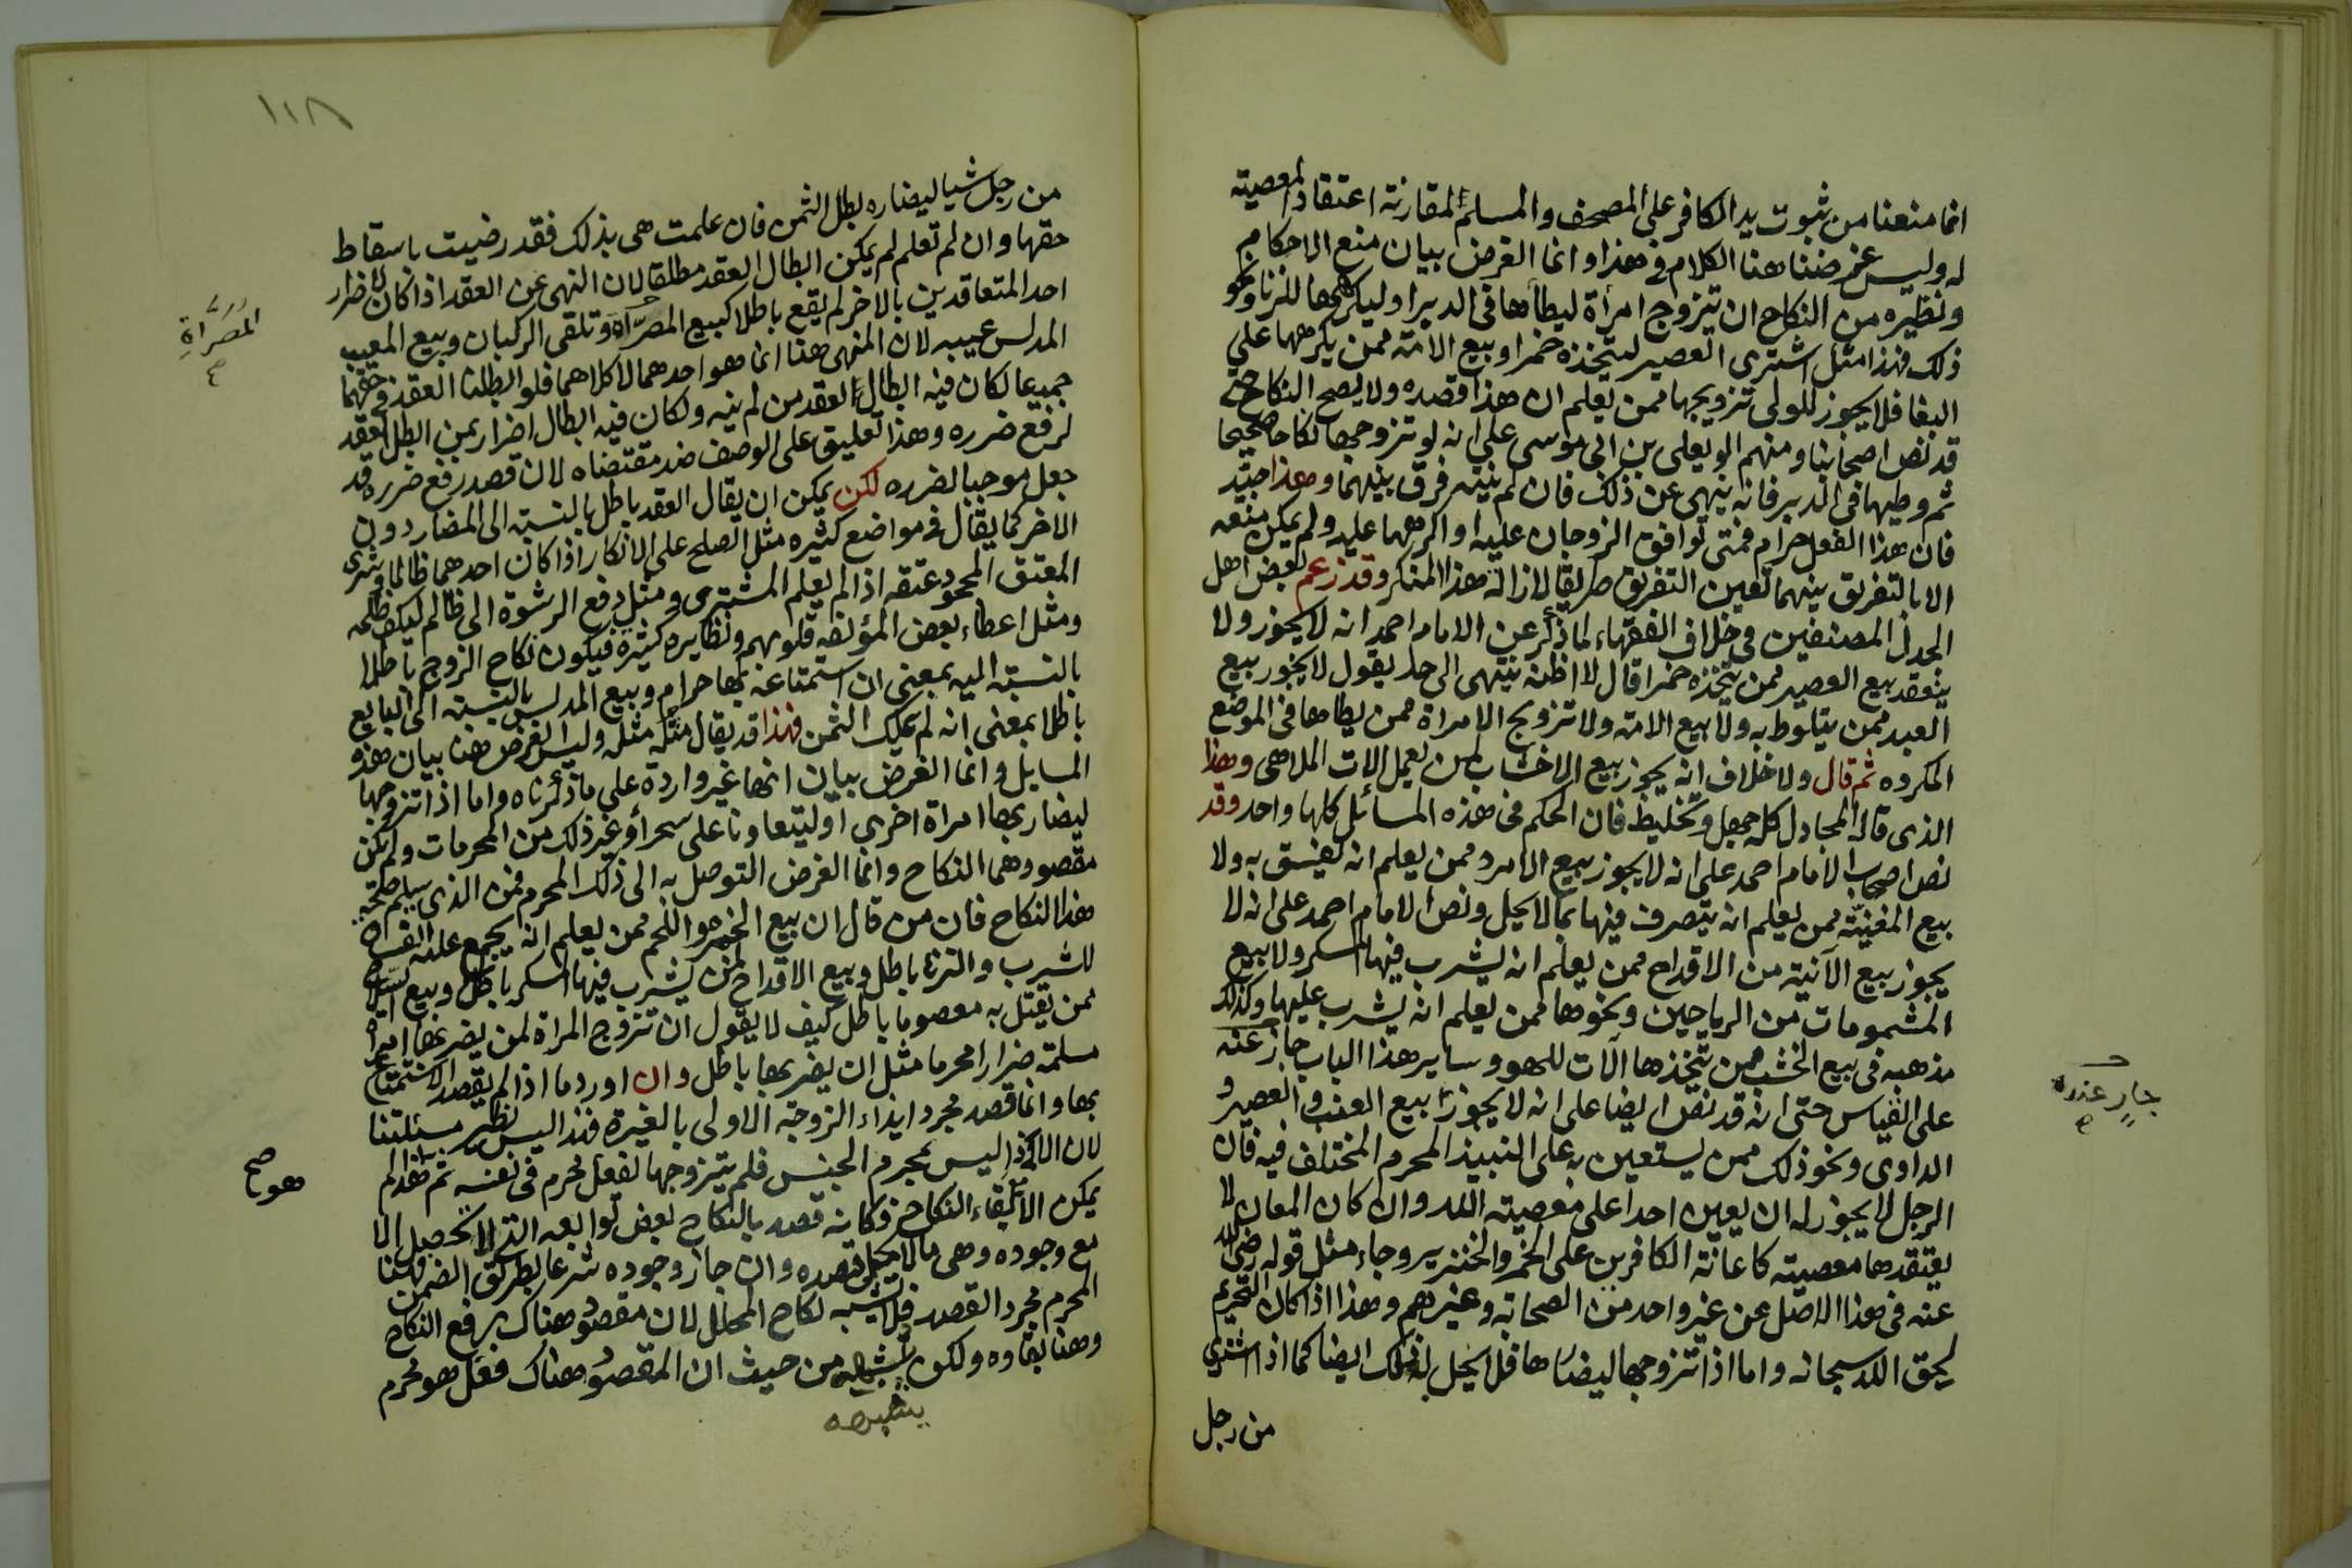 انما منعنا من ثبوت يد الكافر على المصحف والمسلم لمقارنة اعتقاد المعصية
له وليس غرضنا هنا الكلام في هذا وانما الغرض بيان منع الاحكام
ونظيره من النكاح ان تيزوج امرأة ليطأها في الدبر او ليكرهها للزنا ونحو
ذلك فهذا مثل اشترى العصير ليتخذه خمرا وبيع الامة ممن يكرهها على
البغا فلا يجوز للولى تزويجها ممن يعلم ان هذا قصده ولا يصح النكاح حتى
قد نص اصحابنا ومنهم ابو يعلى بن ابى موسى على انه لو تزوجها نكاحا صحيحا
ثم وطيها في الدبر فانه ينهى عن ذلك فان لم ينته فرق بينهما وهذا جيد
فان هذا الفعل حرام فمتى توافق الزوجان عليه او اكرهها عليه ولم يمكن منعه
الا بالتفريق بينهما تعين التفريق طريقا لازالة هذا المنكر وقد زعم بعض اهل
الجدل المصنفين في خلاف الفقهاء لما ذكر عن الامام احمد انه لا يجوز ولا
ينعقد بيع العصير ممن يتخذه خمرا قال لا اظنه ينتهى الى حد يقول لا يجوز بيع
العبد ممن يتلوط به ولا بيع الامة ولا تزويج الامراة ممن يطاها في الموضع
المكروه ثم قال ولا خلاف انه يجوز بيع الاخشاب لمن يعمل الات الملاهى وهذا
الذى قاله المجادل كله جهل وتخليط فان الحكم في هذه المسائل كلها واحد وقد
نص اصحاب الامام احمد على انه لا يجوز بيع الامرد ممن يعلم انه يفسق به ولا
بيع المغنيّة ممن يعلم انه يتصرف فيها بما لا يحل ونص الامام احمد على انه لا
يجوز بيع الآنية من الاقداح ممن يعلم انه يشرب فيها المسكر ولا بيع
المشمومات من الرياحين ونحوها ممن يعلم انه يشرب عليها وكذلك
مذهبه في بيع الخشب ممن يتخذها آلات للهو وساير هذا الباب جاز عنه
على القياس حتى انه قد نص ايضا على انه لا يجوز بيع العنب والعصير و
الداوى ونحو ذلك ممن يستعين به على النبيذ المحرم المختلف فيه فان
الرجل لا يجوز له ان يعين احدا على معصية الله وان كان المعان لا
يعتقدها معصية كاعانة الكافرين على الخمر والخنزير وجاء مثل قوله رضى الله
عنه في هذا الاصل عن غير واحد من الصحابة وغيرهم وهذا اذا كان التحريم
لحق الله سبحانه واما اذا تزوجها ليضارها فلا يحل له ذلك ايضا كما اذا اشترى
من رجل
جارٍ عنده
١١٨
من رجل شيا ليضاره بطل الثمن فان علمت هى بذلك فقد رضيت باسقاط
حقها وان لم تعلم لم يمكن ابطال العقد مطلقا لان النهى عن العقد اذا كان لاضرار
احد المتعاقدين بالاخر لم يقع باطلا كبيع المصرّاة وتلقى الركبان وبيع المعيب
المدلس عيبه لان المنهى هنا انما هو احدهما لا كلاهما فلو ابطلنا العقد في حقهما
جميعا لكان فيه ابطال العقد من لم ينه ولكان فيه ابطال اضرار بمن ابطل العقد
لرفع ضرره وهذا تعليق على الوصف ضد مقتضاه لان قصد رفع ضرره قد
جعل موجبا لضرره لكن يمكن ان يقال العقد باطل بالنسبة الى المضار دون
الاخر كما يقال في مواضع كثيره مثل الصلح على الانكار اذا كان احدهما ظالما وشرى
المعتق المحجود عتقه اذا لم يعلم المشترى ومثل دفع الرشوة الى ظالم ليكف ظلمه
ومثل اعطاء بعض المؤلفه قلوبهم ونظايره كثيرة فيكون نكاح الزوج باطلا
بالنسبة اليه بمعنى ان استمتاعه بها حرام وبيع المدلس بالنسبة الى البايع
باطلا بمعنى انه لم يملك الثمن فهذا قد يقال مثله مثله وليس الغرض هنا بيان هذه
المسايل وانما الغرض بيان انها غير واردة على ما ذكرناه واما اذا تزوجها
ليضار بها امراة اخرى او ليتعاونا على سحر أو غير ذلك من المحرمات ولم يكن
مقصودهما النكاح وانما الغرض التوصل به الى ذلك المحرم فمن الذى يسلم صحة
هذا النكاح فان من قال ان بيع الخبز واللحم ممن يعلم انه يجمع عليه الفساق
للشرب والزنا باطل وبيع الاقداح لمن يشرب فيها المسكر باطل وبيع السلاح
ممن يقتل به معصوما باطل كيف لا يقول ان تزوج المراة لمن يضر بها امراة
مسلمة ضرارا محرما مثل ان يضر بها باطل وان اورد ما اذا لم يقصد الاستمتاع
بها وانما قصد مجرد ايذاء الزوجة الاولى بالغيرة فهذا ليس نظير مسئلتنا
لان الاذى ليس بمحرم الجنس فلم يتزوجها لفعل محرم في نفسه ثم هذا لم
يمكن الا ببقاء النكاح فكانه قصد بالنكاح بعض توابعه التى لا تحصل الا
مع وجوده وهى مالا يحل قصده وان جاز وجوده شرعا بطريق الضمن فهنا
المحرم مجرد القصد فلا يشبه نكاح المحلل لان مقصود هناك رفع النكاح
وهنا بقاوه ولكن يشبهه من حيث ان المقصود هناك فعل هو محرم
يشبهه
المُصَرَّاةِ
هو صح